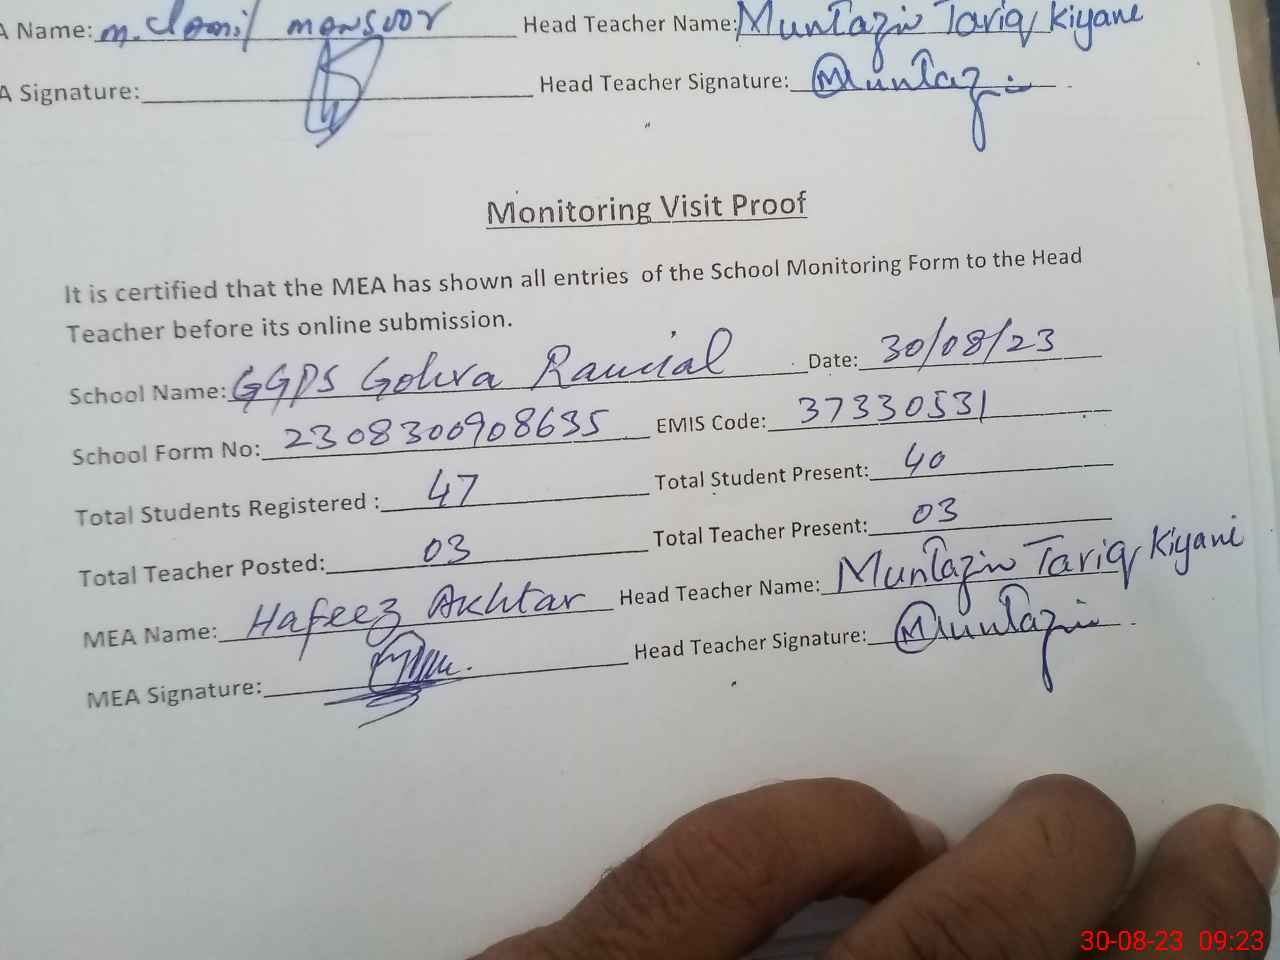 A Name: m. Jamil mansoor Head Teacher Name: Muntazir Tariq Kiyani
A Signature: Head Teacher Signature: Muntazir
Monitoring Visit Proof
It is certified that the MEA has shown all entries of the School Monitoring Form to the Head
Teacher before its online submission.
School Name: GGPS Gohra Date: 30/08/23
School Form No: 2308300908635 EMIS Code: 37330531
Total Students Registered : 47 Total Student Present: 40
Total Teacher Posted: 03 Total Teacher Present: 03
MEA Name: Hafeez Akhtar Head Teacher Name: Muntazir Tariq Kiyani
MEA Signature: Head Teacher Signature: Muntazir
30-08-23 09:23